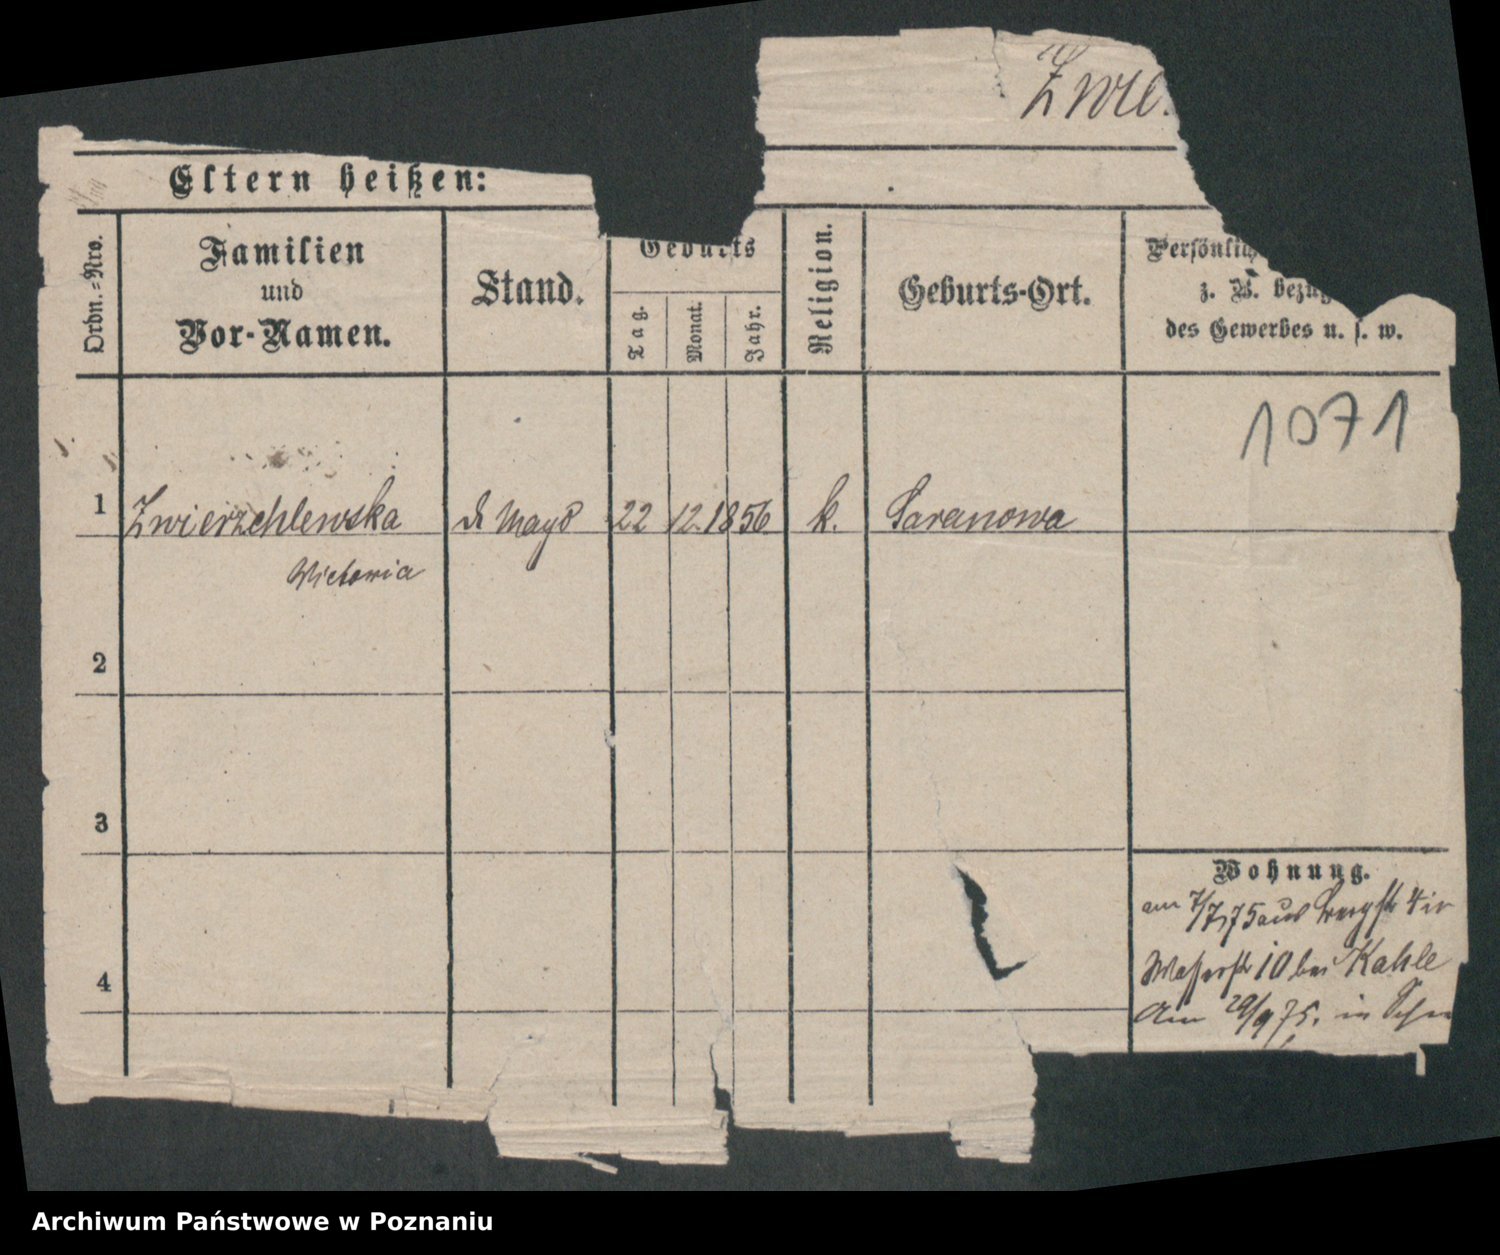 Zwie
Eltern heißen:
Ordn.-Nro.
Familien
und
Vor-Namen.
Stand.
Geburts
Tag.
Monat.
Jahr.
Religion.
Geburts-Ort.
Persönlic
z. B. bezüg
des Gewerbes u. s. w.
1071
1 Zwierzchlewska 22 12. 1856 k. Saranowa
Victoria
2
3
4
Wohnung.
am 7/7 75 aus Bergstr 4 in
Wasserstr 10 bei Kahle
Am 29/9 75. in
Archiwum Państwowe w Poznaniu